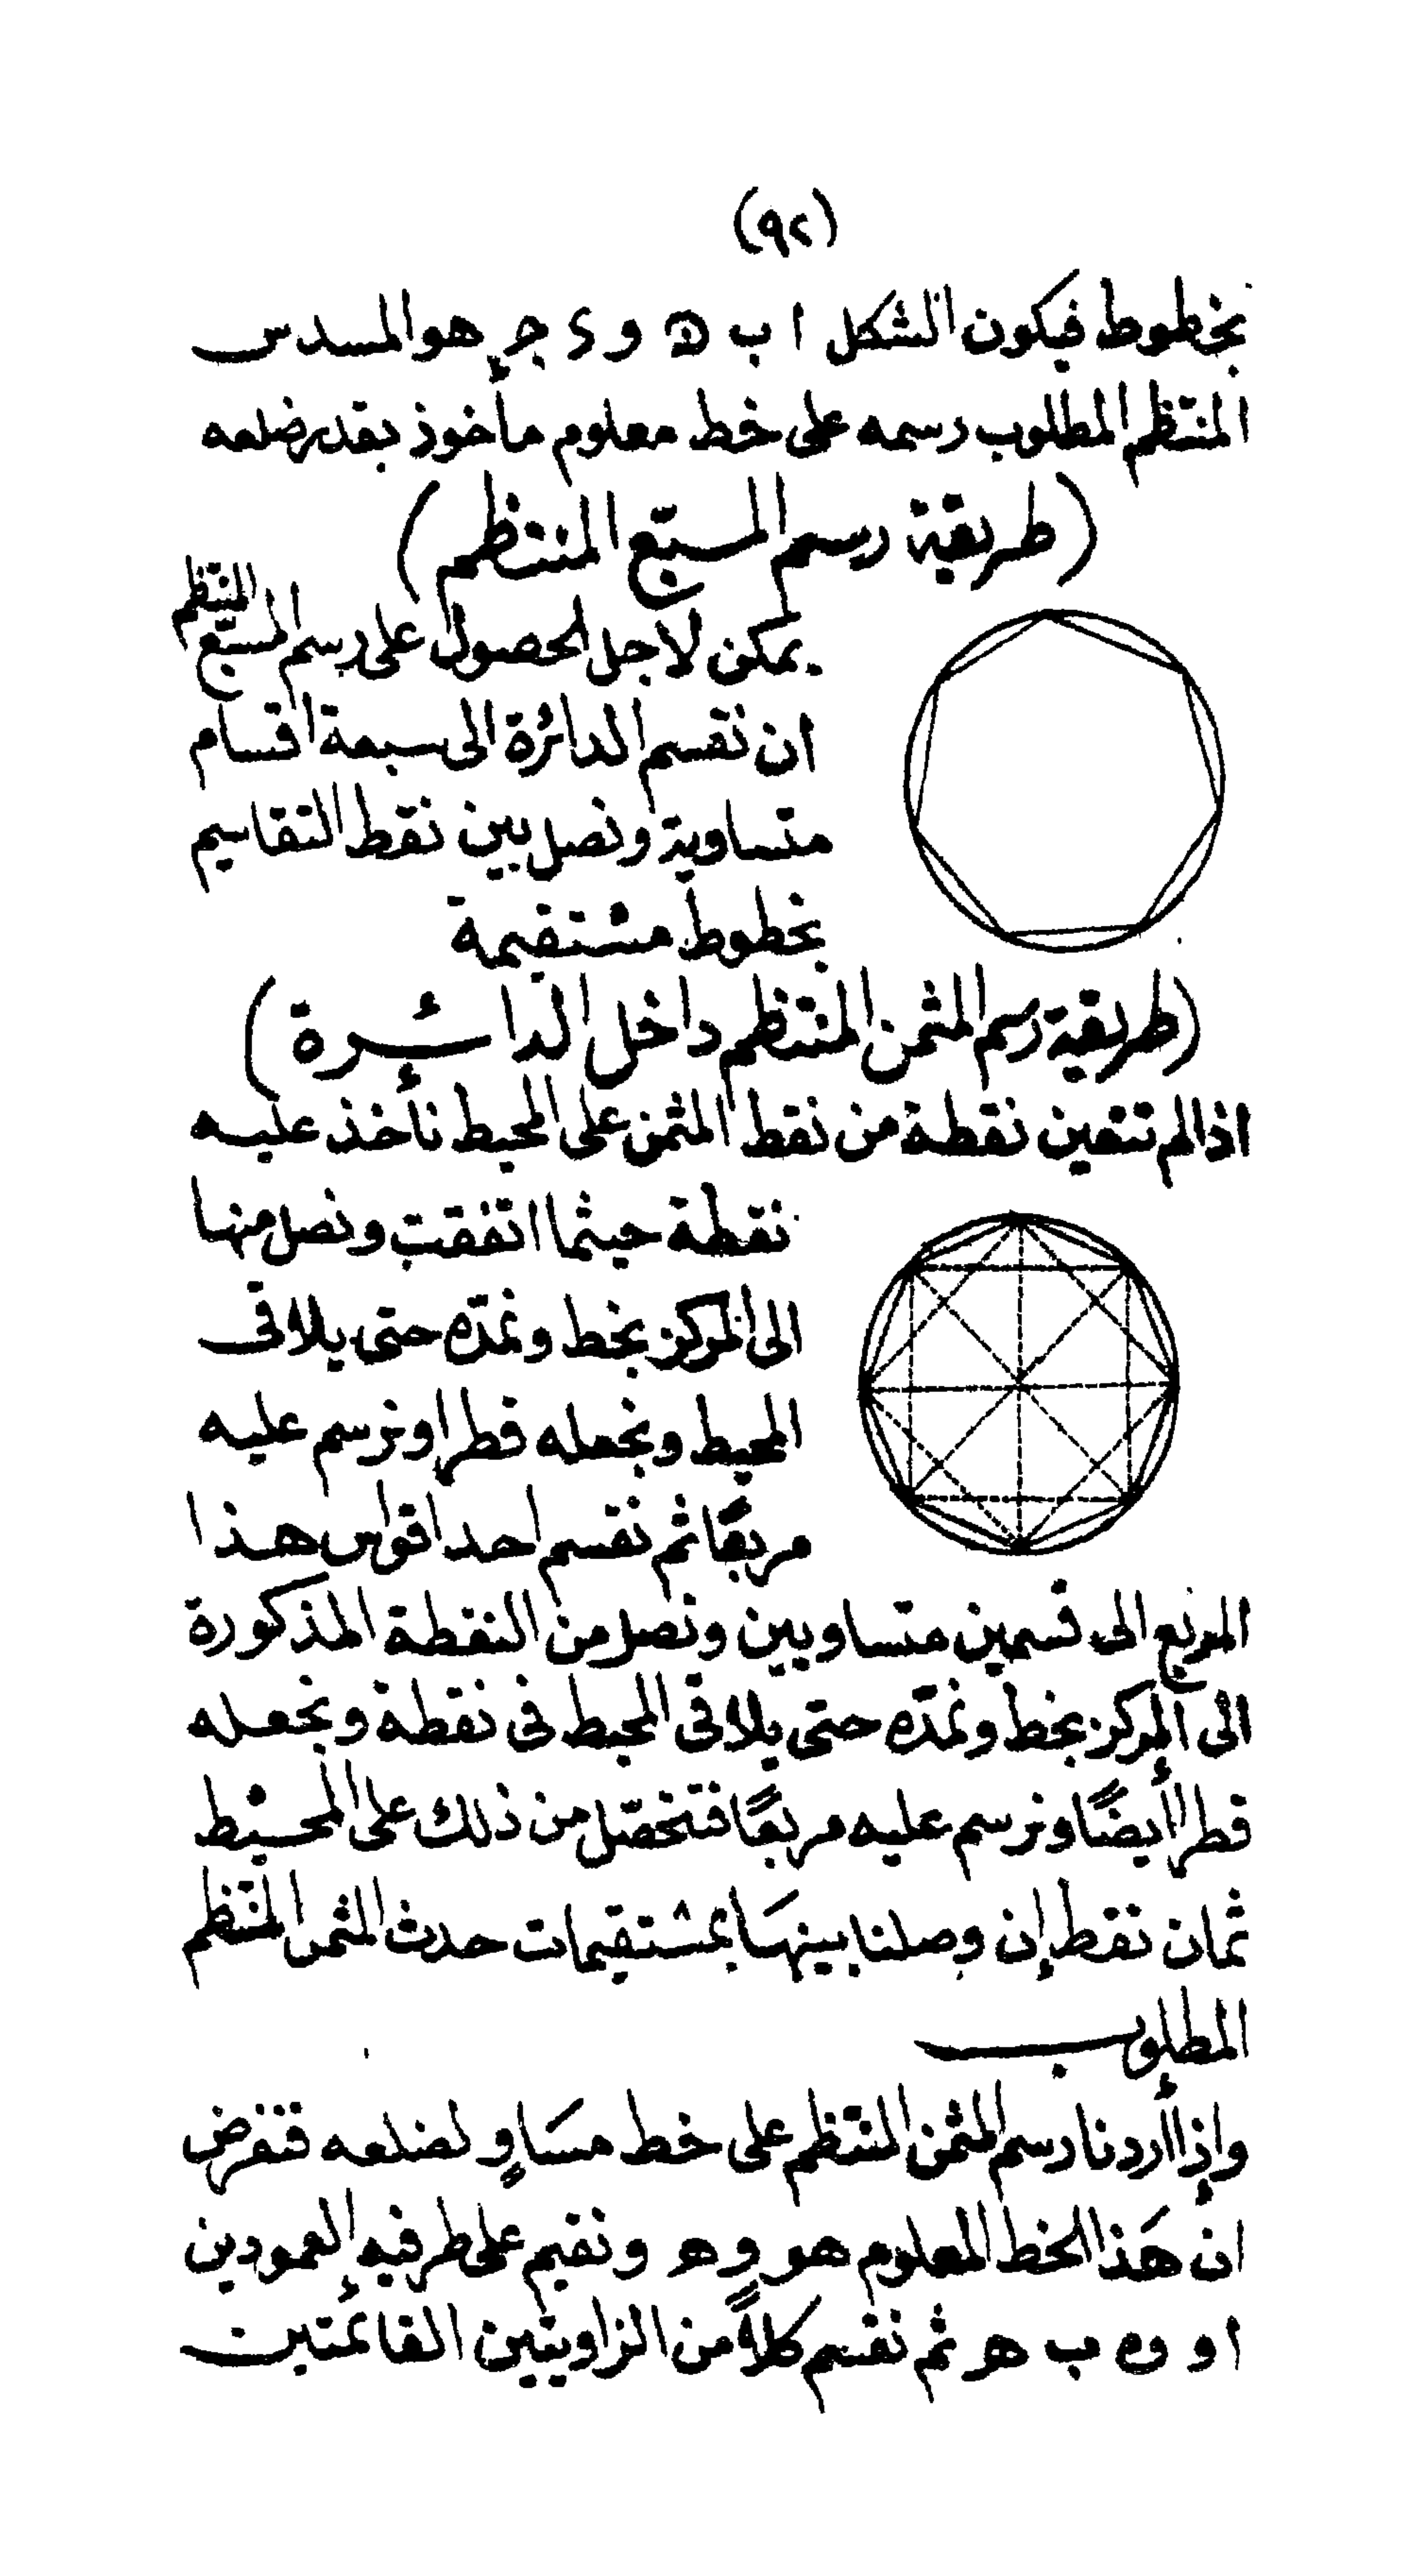 (٩٢)
بخطوط فيكون الشكل ا ب ه و د ج هو المسدس
المنتظم المطلوب رسمه على خط معلوم مأخوذ بقدر ضلعه
(طريقة رسم المسبّع المنتظم)
يمكن لاجل الحصول على رسم المسبّع المنتظم
ان نقسم الدائرة الى سبعة اقسام
متساوية ونصل بين نقط التقاسيم
بخطوط مستقيمة
(طريقة رسم المثمن المنتظم داخل الدائرة)
اذا لم تتعين نقطة من نقط المثمن على المحيط نأخذ عليه
نقطة حيثما اتفقت ونصل منها
الى المركز بخط ونمدّه حتى يلاقى
المحيط ونجعله قطرا ونرسم عليه
مربعًا ثم نقسم احد اقواس هذا
المربع الى قسمين متساويين ونصل من النقطة المذكورة
الى المركز بخط ونمدّه حتى يلاقى المحيط فى نقطة ونجعله
قطرا أيضًا ونرسم عليه مربعًا فتحصّل من ذلك على المحيط
ثمان نقط إن وصلنا بينها بمستقيمات حدث المثمن المنتظم
المطلوب
وإذا أردنا رسم المثمن المنتظم على خط مسَاوٍ لضلعه فنفرض
ان هَذا الخط المعلوم هو و ه ونقيم على طرفيه العمودين
ا و و ب ه ثم نقسم كلاًّ من الزاويتين القائمتين